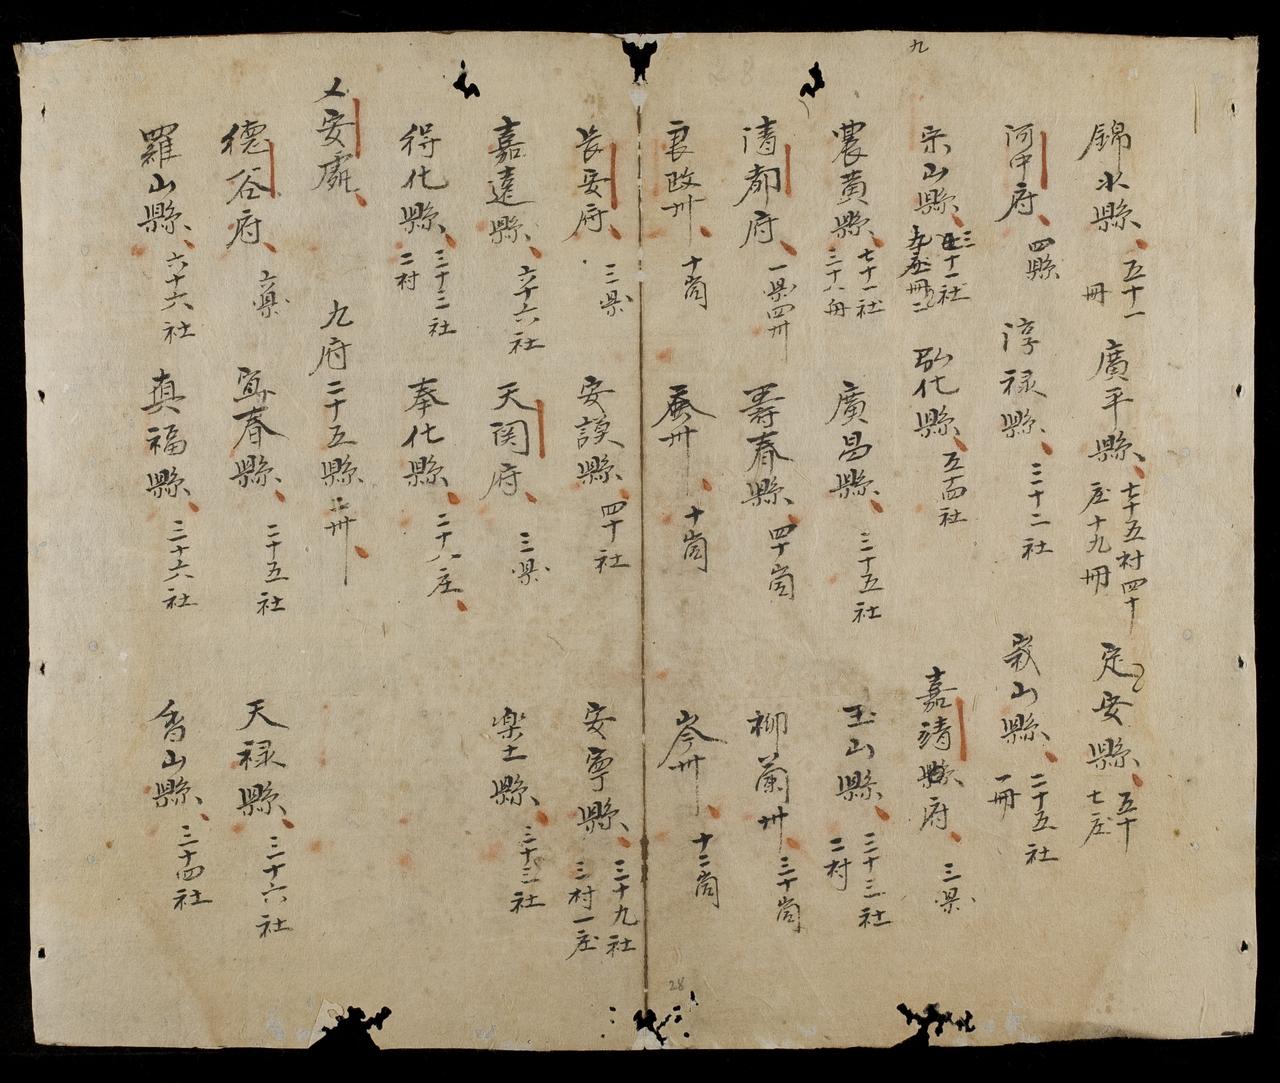 九
錦水縣 五十一冊 廣平縣 七十五村四十庄十九冊 定安縣 五十七庄
河中府 四縣 淳禄縣 三十二社 峩山縣 二十五社一冊
宋山縣 三十一社 弘化縣 五十四社 嘉靖府 三県
農貢縣 七十一社三十八冊 廣昌縣 三十五社 玉山縣 三十三社二村
清都府 一県四州 壽春縣 四十崗 柳蘭州 三十崗
良政州 十崗 蚕州 十崗 岑州 十二崗
長安府 三県 安謨縣 四十社 安寧縣 三十九社三村一庄
嘉遠縣 六十六社 天関府 三県 楽土縣 三十三社
得化縣 三十二社二村 奉化縣 二十八庄
乂安處 九府二十五縣二州
德谷府 六県 宜春縣 二十五社 天禄縣 三十六社
羅山縣 六十六社 真福縣 二十六社 香山縣 三十四社
28